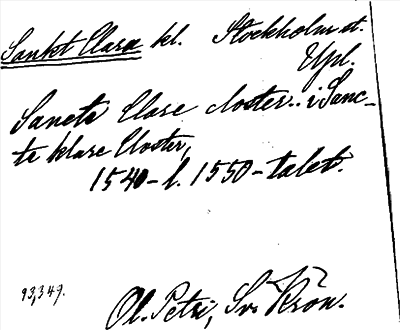 Sankt Clara kl. Stockholms st.
Upl.
Sancte Clare closter.. i Sanc-
te klare Closter,
1540- l. 1550-talet.
93,349.
Ol. Petri, Sv. Krön.